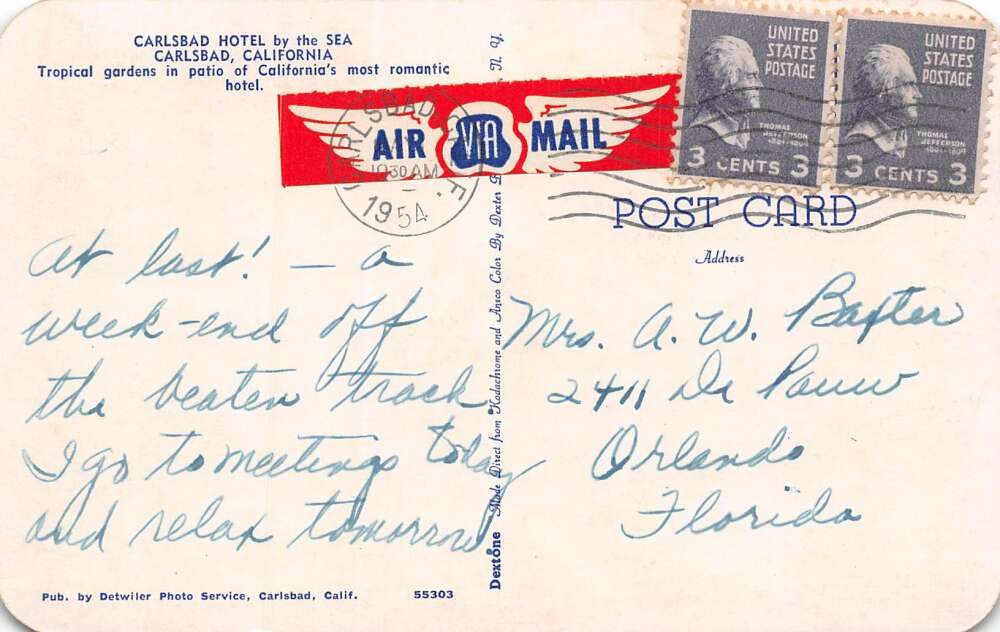 CARLSBAD HOTEL by the SEA
CARLSBAD, CALIFORNIA
Tropical gardens in patio of California's most romantic
hotel.
AIR VIA MAIL
CARLSBAD, CALIF.
1030 AM
1954
UNITED
STATES
POSTAGE
THOMAS
JEFFERSON
1801-1809
3 CENTS 3
UNITED
STATES
POSTAGE
THOMAS
JEFFERSON
1801-1809
3 CENTS 3
POST CARD
Address
At last! — a
week-end off
the beaten track
I go to meetings today
and relax tomorrow
Mrs. A. W. Baxter
2411 De Pauw
Orlando
Florida
Dextone Made Direct from Kodachrome and Ansco Color By Dexter N. Y.
Pub. by Detwiler Photo Service, Carlsbad, Calif. 55303